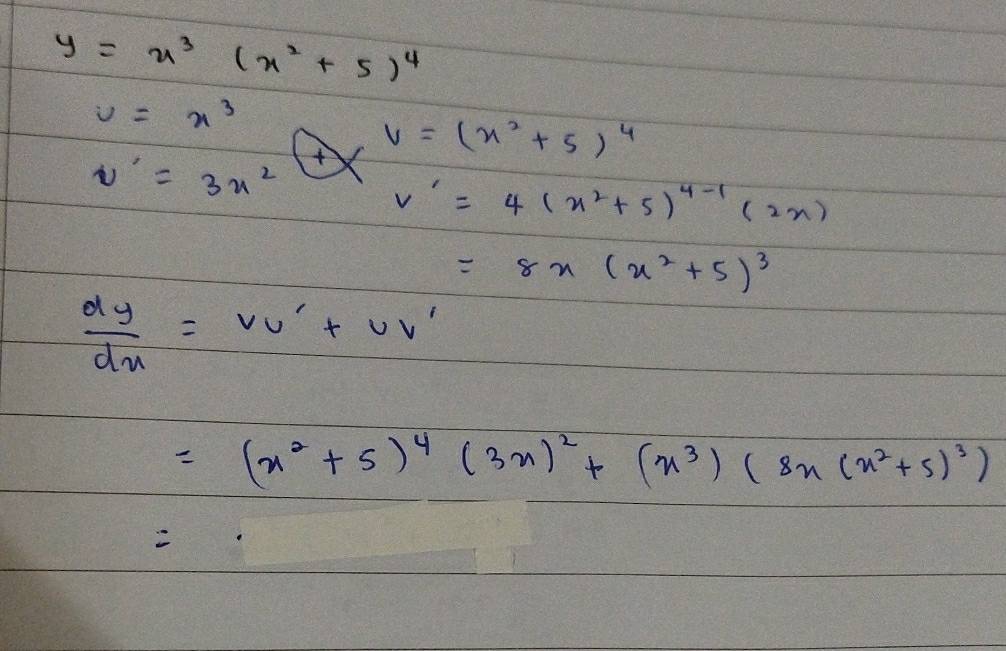 y = x³ (x² + 5)⁴
u = x³
v = (x² + 5)⁴
u' = 3x²
+
v' = 4(x² + 5)⁴⁻¹ (2x)
= 8x (x² + 5)³
dy/dx = vu' + uv'
= (x² + 5)⁴ (3x)² + (x³) (8x (x² + 5)³)
=